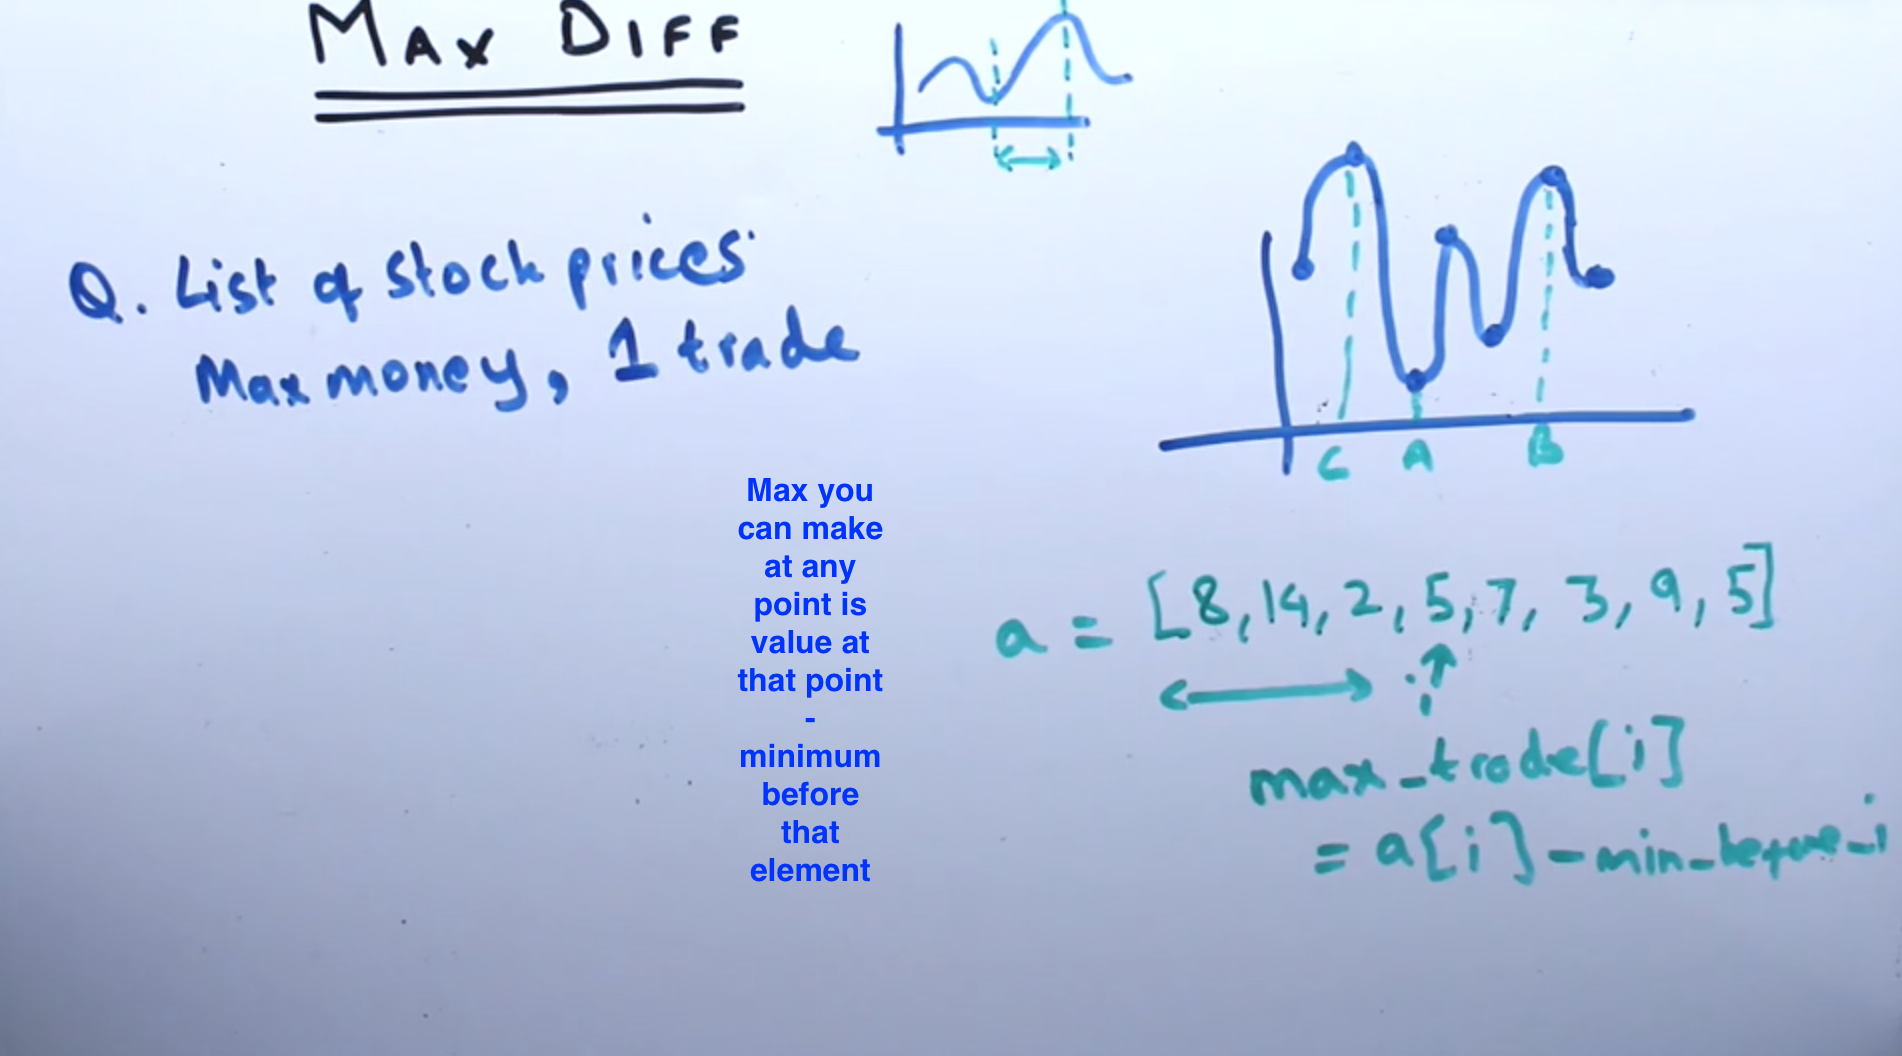 MAX DIFF
Q. List of stock prices
Max money, 1 trade
C A B
Max you
can make
at any
point is
value at
that point
-
minimum
before
that
element
a = [8, 14, 2, 5, 7, 3, 9, 5]
max_trade[i]
= a[i] - min_before_i